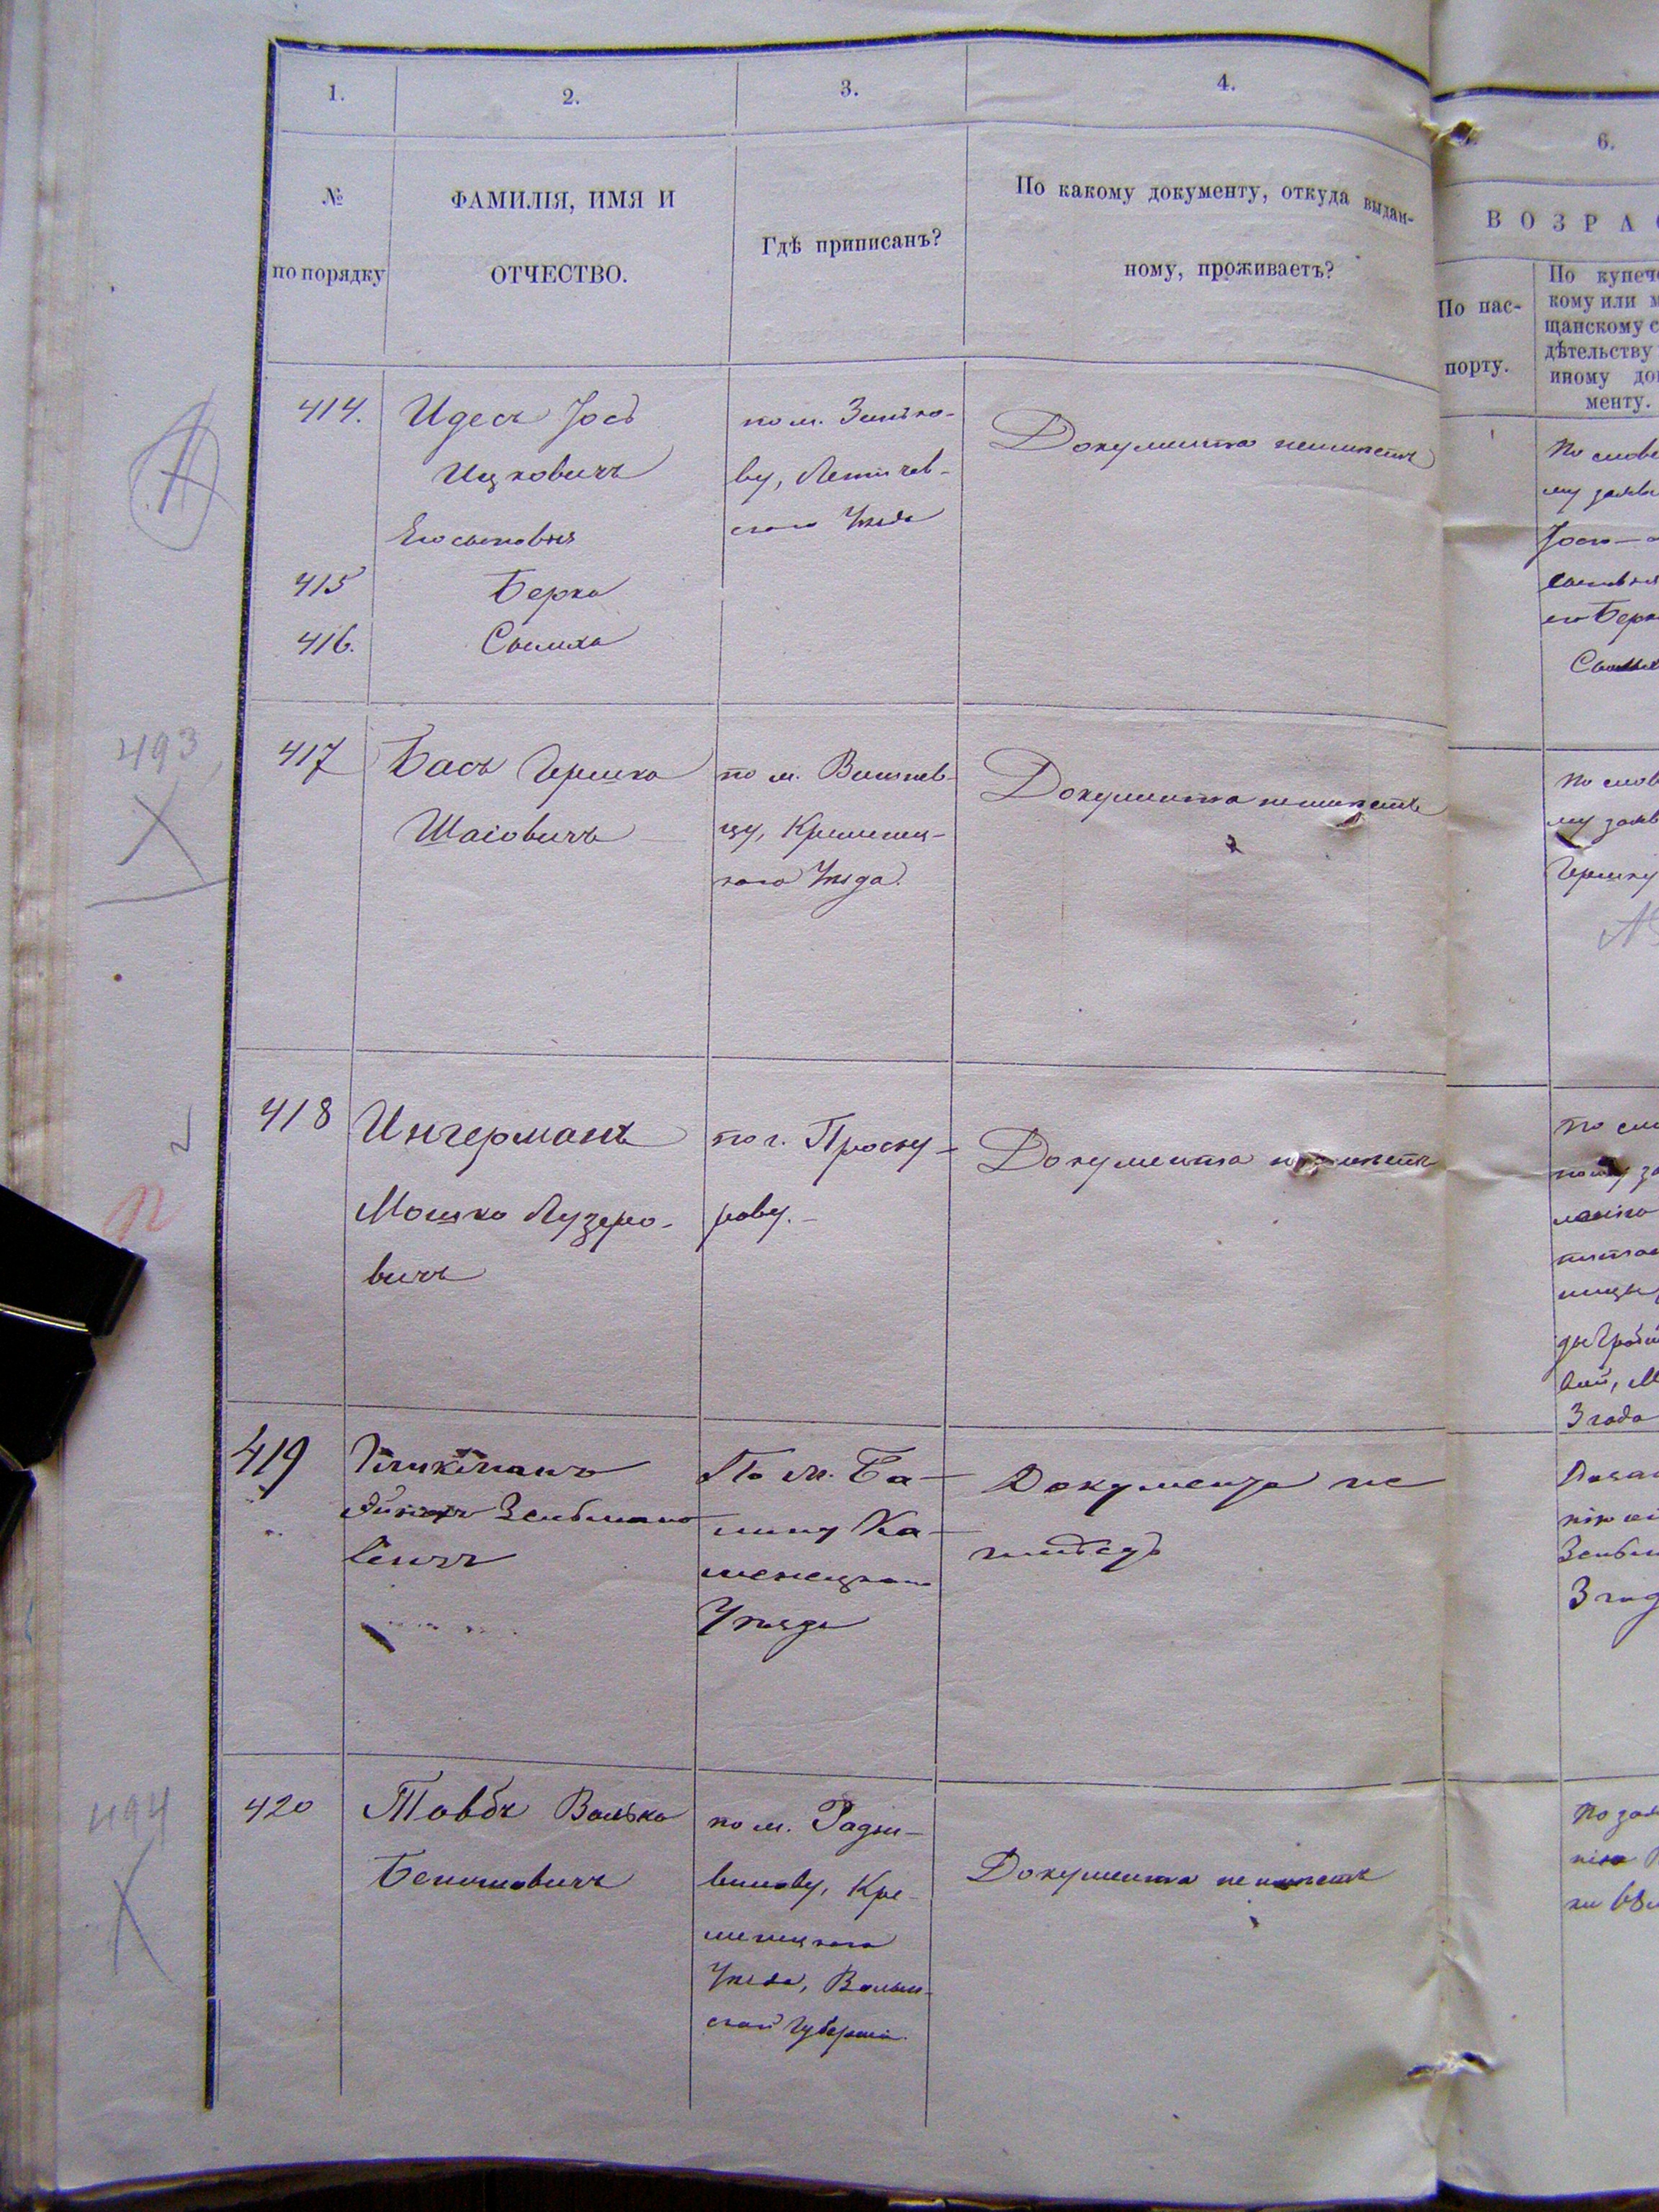 1.
2.
3.
4.
6.
№
по порядку
ФАМИЛІЯ, ИМЯ И
ОТЧЕСТВО.
Гдѣ приписанъ?
По какому документу, откуда выдан-
ному, проживаетъ?
ВОЗРА
По пас-
порту.
По купеч
кому или м
щанскому с
дѣтельству
иному до
менту.
414.
Идесъ Іосъ
Ицковичъ
Его сыновья
по м. Зинько-
ву, Летичев-
скаго Уѣзда
Документа неимѣетъ
415
Берко
416.
Сымха
По слове
му заявл
Іосю
сыновья
его Берк
Сымх
493
417
Басъ Гершко
Шаіовичъ
по м. Вишнев-
цу, Кременец-
каго Уѣзда.
Документа неимѣетъ
По слов
му заяв
Гершку
418
Ингерманъ
Мошко Лузеро-
вичъ
по г. Проску-
рову.
Документа неимѣетъ
По сло
3 года
419
Зельмано
вичъ
По м. Ба-
лину Ка-
менецкаго
Уѣзда
Документа не
имѣетъ
3 год
494
420
Товбъ Волько
Бенюмовичъ
по м. Радзи-
вилову, Кре-
менецкаго
Уѣзда, Волын-
ской Губерніи
Документа не имѣетъ
По зая